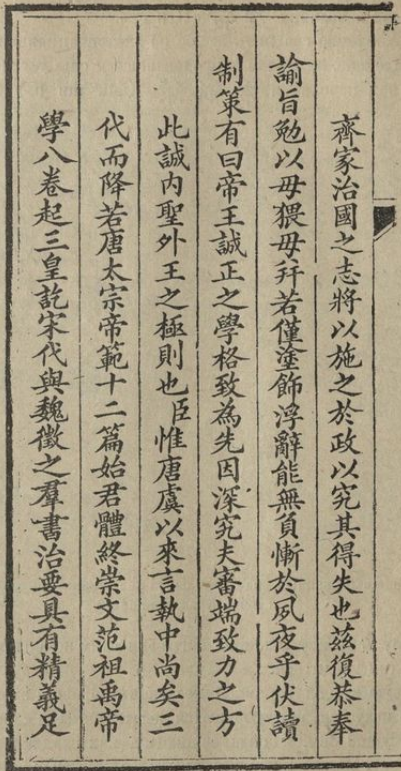 齊家治國之志將以施之於政以究其得失也茲復恭奉
諭旨勉以毋猥毋幷若僅塗飾浮辭能無負慚於夙夜乎伏讀
制策有曰帝王誠正之學格致為先因深究夫審端致力之方
此誠内聖外王之極則也臣惟唐虞以來言執中尚矣三
代而降若唐太宗帝範十二篇始君體終崇文范祖禹帝
學八卷起三皇訖宋代與魏徵之羣書治要具有精義足